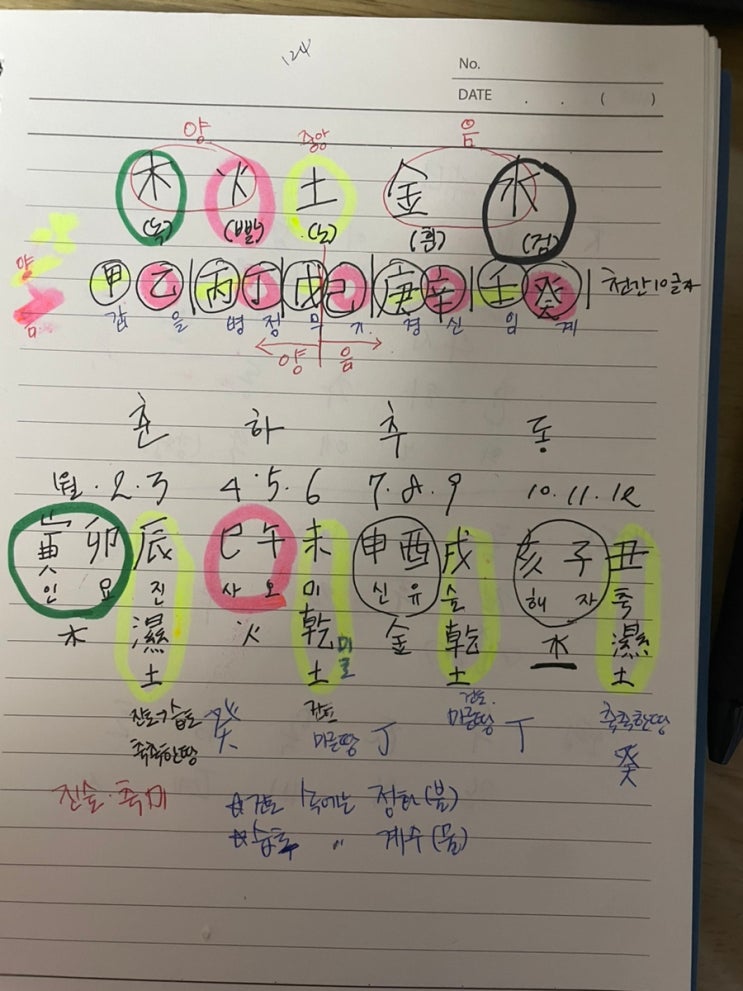 124
No.
DATE . . ( )
양 중앙 음
木 火 土 金 水
(녹) (빨) (노) (흰) (검)
양
음
甲 乙 | 丙 丁 | 戊 己 | 庚 辛 | 壬 癸 | 천간10글자
갑 을 병 정 무 기 경 신 임 계
양 음
춘 하 추 동
1월 . 2 . 3 4 . 5 . 6 7 . 8 . 9 10 . 11 . 12
寅 卯 辰 巳 午 未 申 酉 戌 亥 子 丑
인 묘 진 사 오 미 신 유 술 해 자 축
木 濕土 火 乾土 金 乾土 水 濕土
癸 건토 건토
축축한땅 마른땅 丁 마른땅 丁 축축한땅
癸
진술 . 축미
☆건토 속에는 정화(불)
☆습토 〃 계수(물)